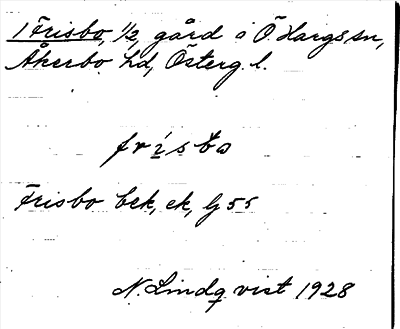 1 Frisbo, 1/2 gård i Ö. Hargs sn,
Åkerbo hd, Österg. l.
frísbo
Frisbo bek, ek, lj 55
N. Lindqvist 1928